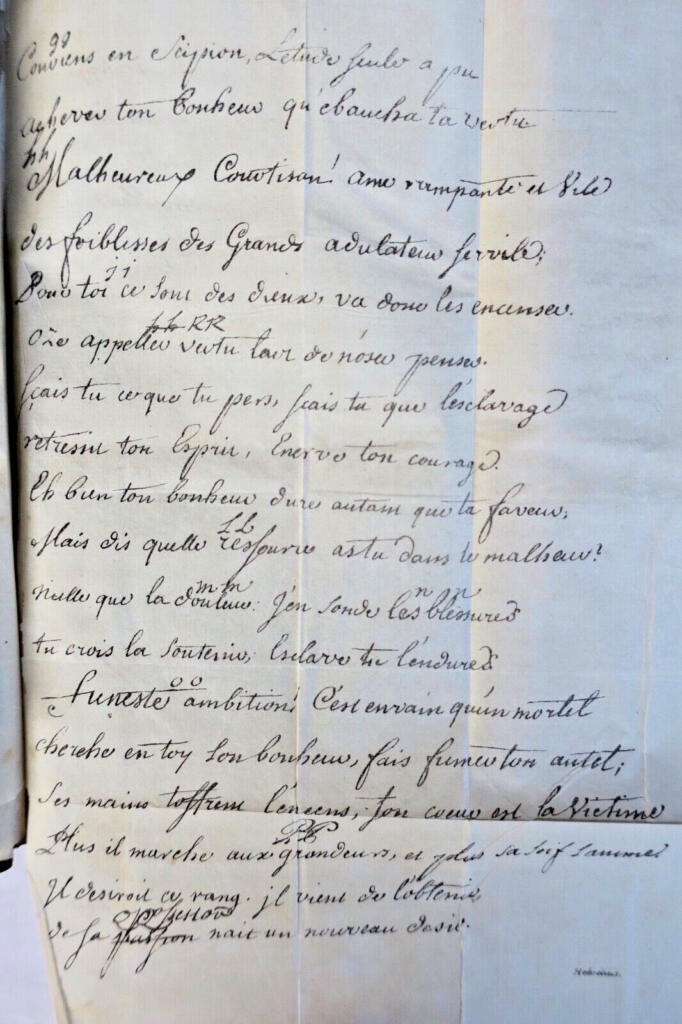 gg
Conviens en Scipion, L'etude seule a pu
achever ton bonheur qu'ebaucha ta vertu
hh
Malheureux Courtisan! ame rampante et Vile
des foiblesses des Grands adulateur servile;
ii
Pour toi ce sont des dieux, va donc les encenser.
kk RR
Oze appeller vertu l'art de n'oser penser.
sçais tu ce que tu pers, sçais tu que l'esclavage
retressit ton Esprit, Enerve ton courage.
Eh bien ton bonheur dure autant que ta faveur;
LL
Mais dis quelle ressource as tu dans le malheur?
mm nn
Nulle que la douleur: j'en sonde les blessures
tu crois la soutenir; Esclave tu l'endures
oo
funeste ambition! C'est envain qu'un mortel
cherche en toy son bonheur, fais fumer ton autel;
Ses mains t'offrent l'encens, son coeur est la Victime
PP
Plus il marche aux grandeurs, et plus sa soif s'anime
Il desiroit ce rang. jl vient de l'obtenir
possession
de sa passion nait un nouveau desir.